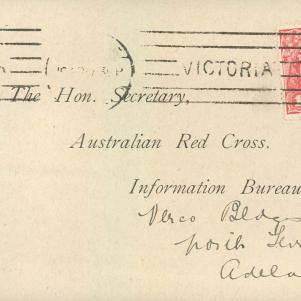 VICTORIA
The Hon. Secretary,
Australian Red Cross.
Information Bureau
Verco Bldgs
North Ter
Adela